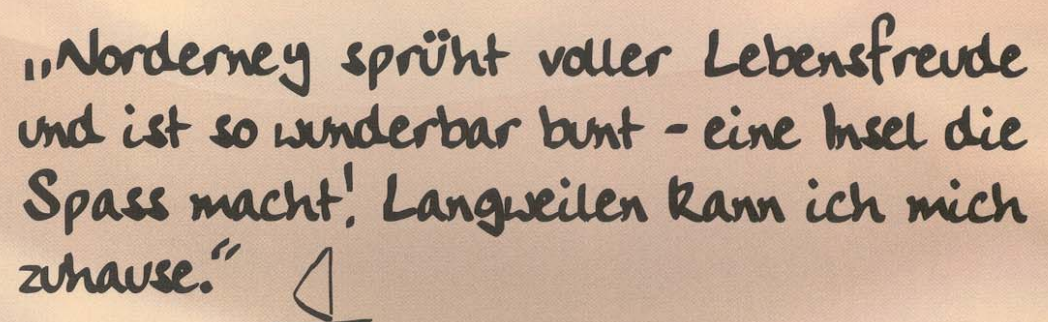 „Norderney sprüht voller Lebensfreude
und ist so wunderbar bunt - eine Insel die
Spass macht! Langweilen kann ich mich
zuhause.“